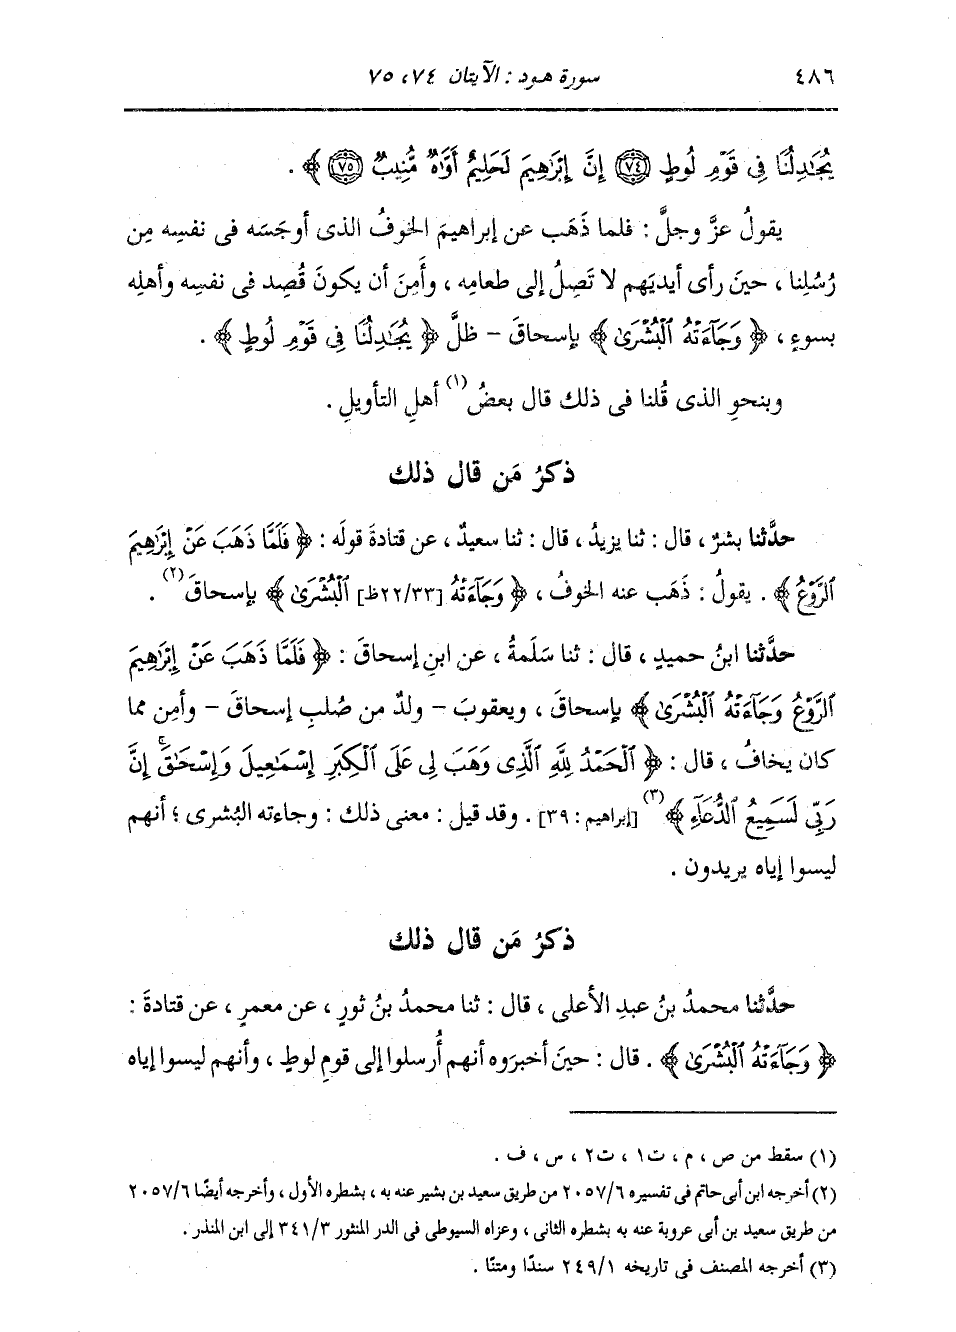 ٤٨٦ سورة هود : الآيتان ٧٤، ٧٥
يُجَٰدِلُنَا فِى قَوْمِ لُوطٍ ﴿٧٤﴾ إِنَّ إِبْرَٰهِيمَ لَحَلِيمٌ أَوَّٰهٌ مُّنِيبٌ ﴿٧٥﴾ ﴾ .
يقولُ عزَّ وجلَّ : فلما ذَهَب عن إبراهيمَ الخوفُ الذى أوجَسَه فى نفسِه مِن
رُسُلِنا ، حينَ رأى أيديَهم لا تَصِلُ إلى طعامِه ، وأَمِنَ أن يكونَ قُصِد فى نفسِه وأهلِه
بسوءٍ ، ﴿ وَجَآءَتْهُ ٱلْبُشْرَىٰ ﴾ بإسحاقَ – ظلَّ ﴿ يُجَٰدِلُنَا فِى قَوْمِ لُوطٍ ﴾ .
وبنحوِ الذى قُلنا فى ذلك قال بعضُ(١) أهلِ التأويلِ .
ذكرُ مَن قال ذلك
حدَّثنا بشرٌ ، قال : ثنا يزيدُ ، قال : ثنا سعيدٌ ، عن قتادةَ قولَه : ﴿ فَلَمَّا ذَهَبَ عَنْ إِبْرَٰهِيمَ
ٱلرَّوْعُ ﴾ . يقولُ : ذَهَب عنه الخوفُ ، ﴿ وَجَآءَتْهُ [٢٢/٣٣ظ] ٱلْبُشْرَىٰ ﴾ بإسحاقَ(٢) .
حدَّثنا ابنُ حميدٍ ، قال : ثنا سَلَمةُ ، عن ابنِ إسحاقَ : ﴿ فَلَمَّا ذَهَبَ عَنْ إِبْرَٰهِيمَ
ٱلرَّوْعُ وَجَآءَتْهُ ٱلْبُشْرَىٰ ﴾ بإسحاقَ ، ويعقوبَ – ولدٌ من صُلبِ إسحاقَ – وأمِن مما
كان يخافُ ، قال : ﴿ ٱلْحَمْدُ لِلَّهِ ٱلَّذِى وَهَبَ لِى عَلَى ٱلْكِبَرِ إِسْمَٰعِيلَ وَإِسْحَٰقَۚ إِنَّ
رَبِّى لَسَمِيعُ ٱلدُّعَآءِ ﴾(٣) [إبراهيم : ٣٩] . وقد قيل : معنى ذلك : وجاءته البُشرى ؛ أنهم
ليسوا إياه يريدون .
ذكرُ مَن قال ذلك
حدَّثنا محمدُ بنُ عبدِ الأعلى ، قال : ثنا محمدُ بنُ ثورٍ ، عن معمرٍ ، عن قتادةَ :
﴿ وَجَآءَتْهُ ٱلْبُشْرَىٰ ﴾ . قال : حينَ أخبرَوه أنهم أُرسلوا إلى قومِ لوطٍ ، وأنهم ليسوا إياه
(١) سقط من ص ، م ، ت١ ، ت٢ ، س ، ف .
(٢) أخرجه ابن أبى حاتم فى تفسيره ٢٠٥٧/٦ من طريق سعيد بن بشير عنه به ، بشطره الأول ، وأخرجه أيضًا ٢٠٥٧/٦
من طريق سعيد بن أبى عروبة عنه به بشطره الثانى ، وعزاه السيوطى فى الدر المنثور ٣٤١/٣ إلى ابن المنذر .
(٣) أخرجه المصنف فى تاريخه ٢٤٩/١ سندًا ومتنًا .